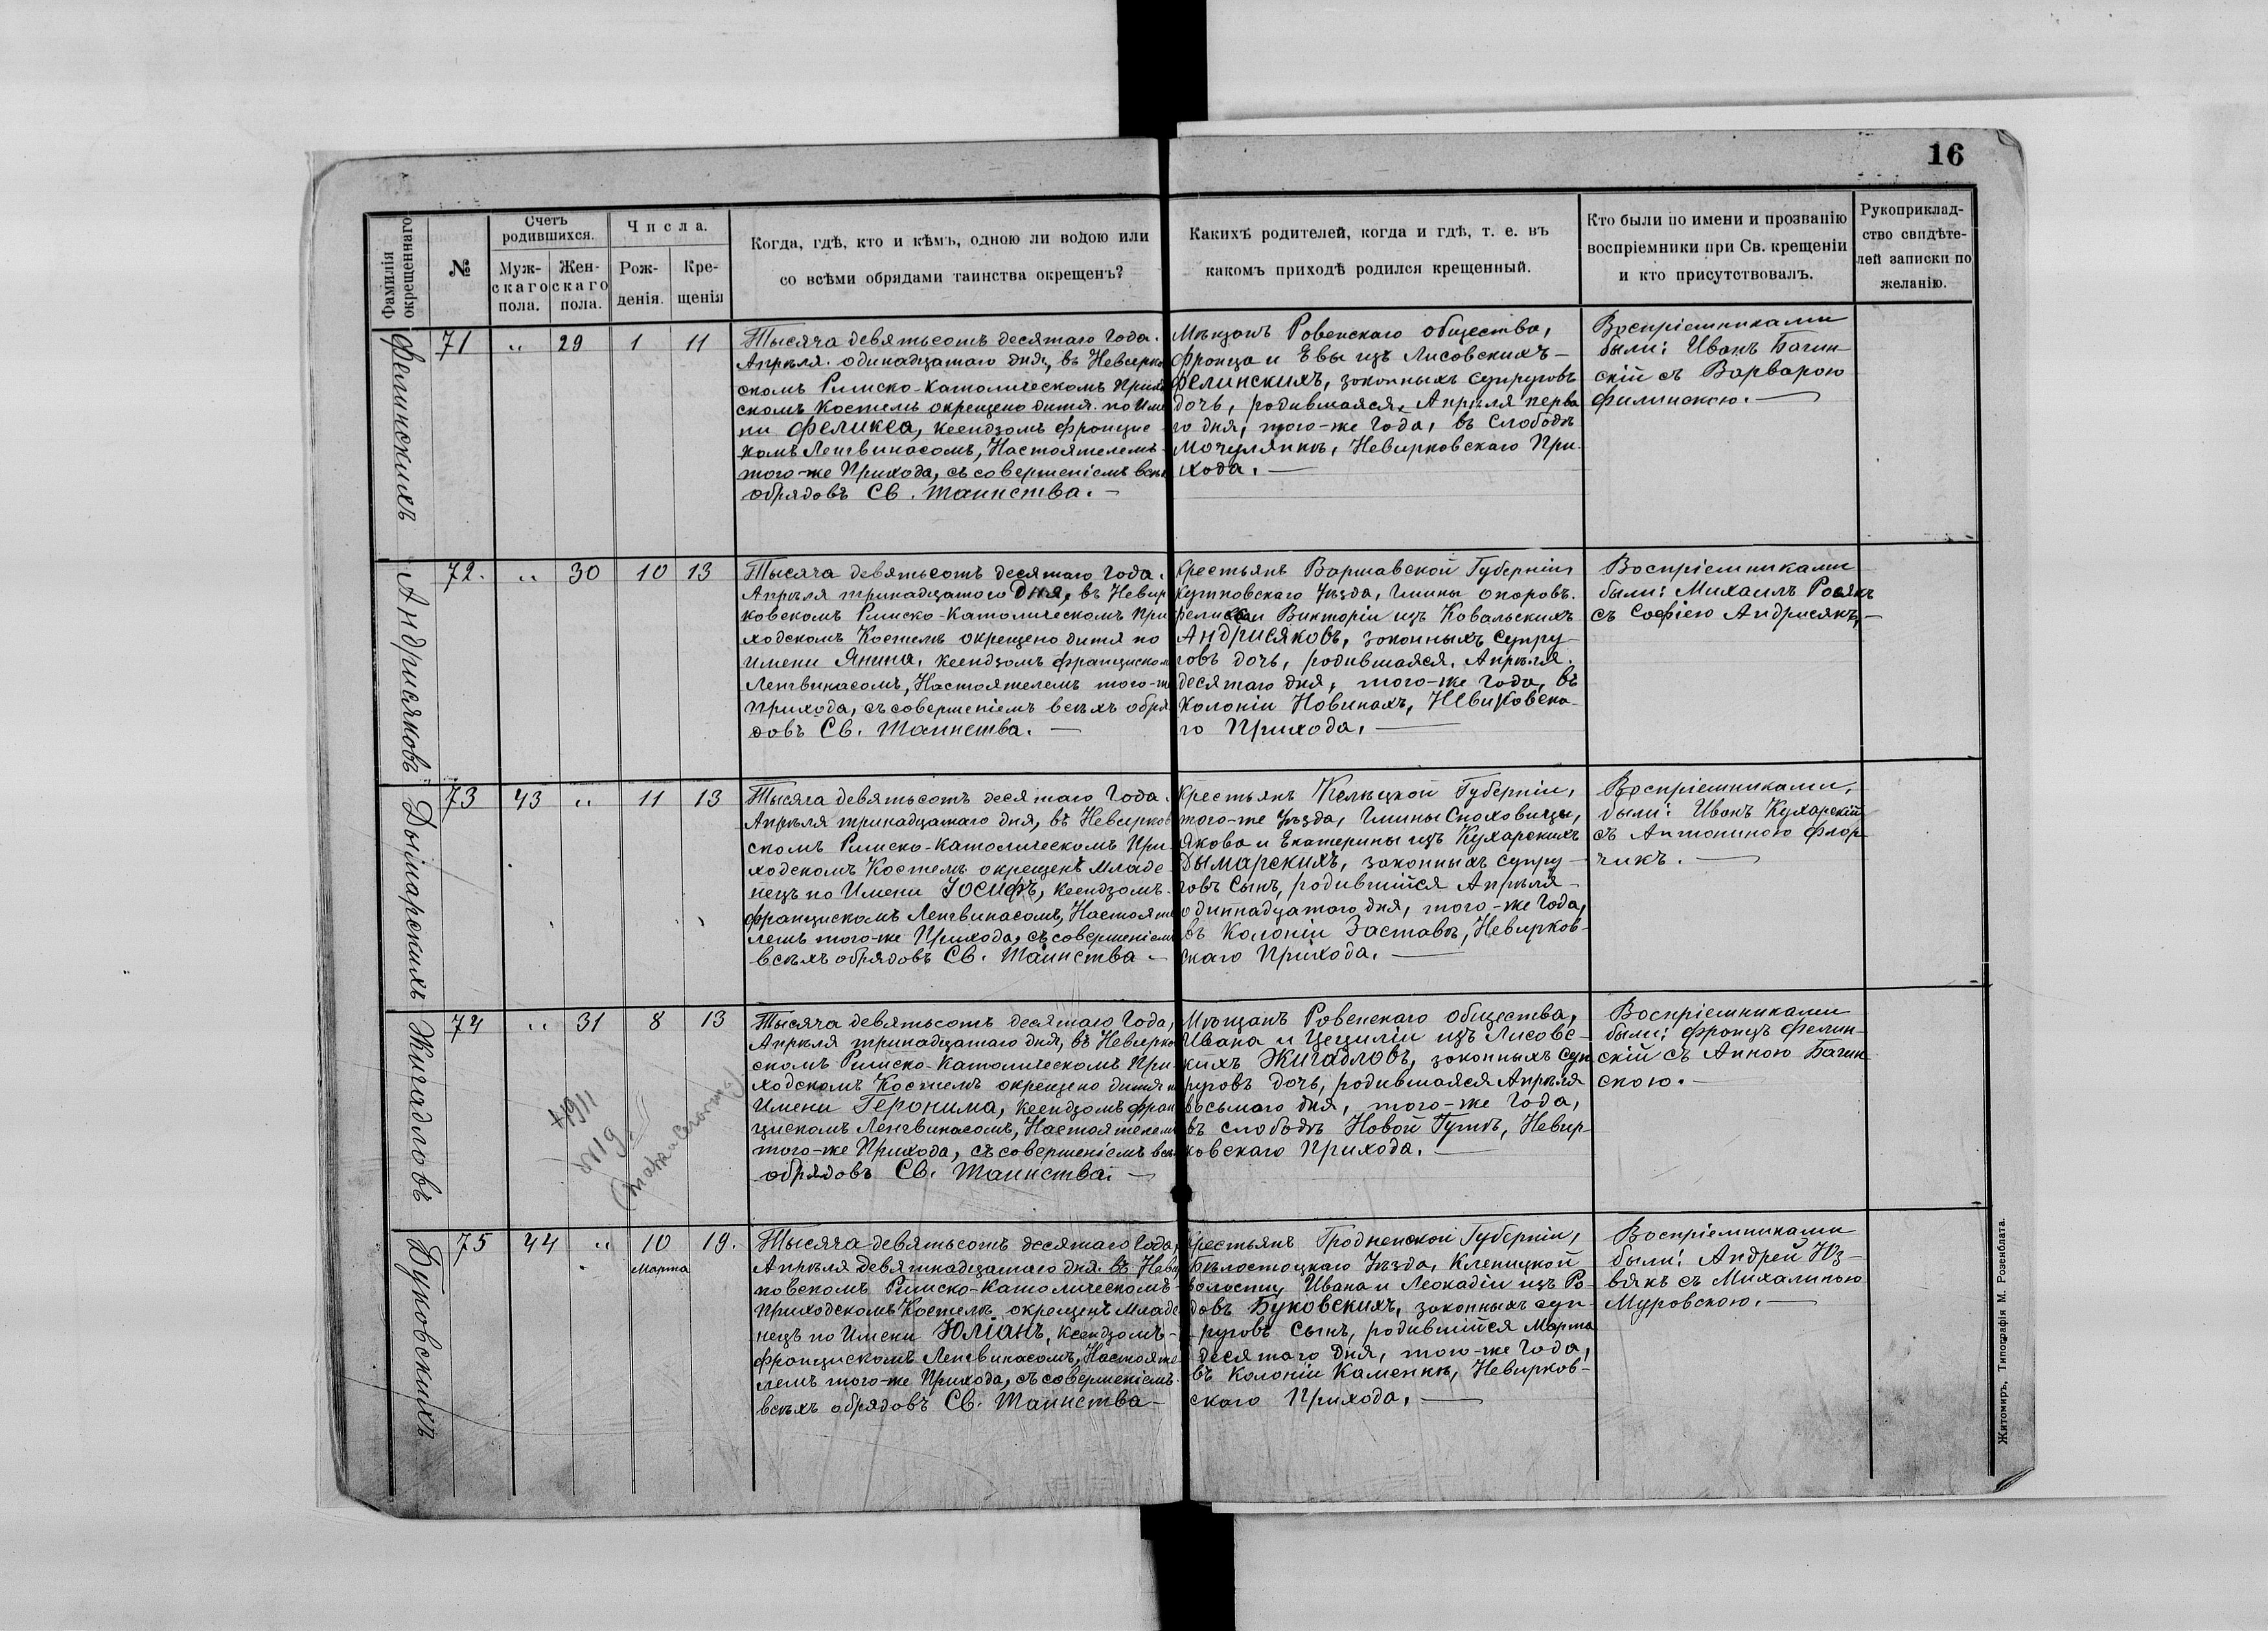 16
Фамилія окрещеннаго
№
Счетъ родившихся.
Муж-скаго пола.
Жен-скаго пола.
Числа.
Рож-денія.
Кре-щенія
Когда, гдѣ, кто и кѣмъ, одною ли водою или
со всѣми обрядами таинства окрещенъ?
Какихъ родителей, когда и гдѣ, т. е. въ
какомъ приходѣ родился крещенный.
Кто были по имени и прозванію
воспріемники при Св. крещеніи
и кто присутствовалъ.
Рукоприклад-
ство свидѣте-
лей записки по
желанію.
Фелинскихъ
71 " 29 1 11
Тысяча девятьсотъ десятаго Года.
Апрѣля. одинадцатаго дня, въ Невирко
скомъ Римско-Католическомъ Прихо
скомъ Костелѣ окрещено дитя по Име
ни Феликса, ксендзомъ Францис
комъ Ленгвинасомъ, Настоятелемъ
того-же Прихода, съ совершеніемъ всѣх
обрядовъ Св. Таинства. —
Мѣщанъ Ровенскаго общества,
Франца и Евы изъ Лисовскихъ —
Фелинскихъ, законныхъ супруговъ
дочь, родившаяся, Апрѣля перва
го дня, того-же Года, въ Слободѣ
Мочулянкѣ, Невирковскаго При-
хода. —
Воспріемниками
были: Иванъ Багин-
скій съ Варварою
Филинскою. —
Андрисяковъ
72. " 30 10 13
Тысяча девятьсотъ десятаго Года.
Апрѣля тринадцатого дня, въ Невир
ковскомъ Римско-Католическомъ При
ходскомъ Костелѣ окрещено дитя по
имени Янина, ксендзомъ Францискомъ
Ленгвинасомъ, Настоятелемъ того-же
Прихода, съ совершеніемъ всѣхъ обря
довъ Св. Таинства. —
Крестьянъ Варшавской Губерніи
Кутновскаго Уѣзда, Гмины Опоровъ.
и Викторіи изъ Ковальскихъ
Андрисяковъ, законныхъ супру-
говъ дочь, родившаяся, Апрѣля.
десятаго дня, того-же Года, въ
Колоніи Новинахъ, Невиковска-
го Прихода. —
Воспріемниками
были: Михаилъ Росякъ
съ Софіею Андрисякъ, —
Дымарскихъ
73 43 " 11 13
Тысяча девятьсотъ десятаго Года.
Апрѣля тринадцатаго дня, въ Невирков
скомъ Римско-Католическомъ При-
ходскомъ Костелѣ окрещенъ Младе-
нецъ по Имени Іосифъ, ксендзомъ
Францискомъ Ленгвинасомъ, Настояте
лемъ того-же Прихода, съ совершеніемъ
всѣхъ обрядовъ Св. Таинства —
Крестьянъ Кѣлецкой Губерніи,
того-же Уѣзда, Гмины Сноховицы,
Якова и Екатерины изъ Кухарскихъ
Дымарскихъ, законныхъ супру-
говъ сынъ, родившійся Апрѣля —
одиннадцатого дня, того-же Года,
въ Колоніи Заставѣ, Невирков-
скаго Прихода. —
Воспріемниками,
были: Иванъ Кухарскій
съ Антониною Флор-
чикъ. —
Жигадловъ
74 " 31 8 13
1911
№ 19.
Тысяча девятьсотъ десятаго Года,
Апрѣля тринадцатаго дня, въ Невирко
скомъ Римско-Католическомъ При-
ходскомъ Костелѣ окрещено дитя п
Имени Геронима, ксендзомъ Фран
цискомъ Ленгвинасомъ, Настоятелем
того-же Прихода, съ совершеніемъ всѣ
обрядовъ Св. Таинства. —
Мѣщанъ Ровенскаго общества,
Ивана и Цециліи изъ Лисовс-
кихъ Жигадловъ, законныхъ суп
руговъ дочь, родившаяся Апрѣля
восьмаго дня, того-же Года,
въ слободѣ Новой Гутѣ, Невир-
ковскаго Прихода. —
Воспріемниками
были: Францъ Фелин-
скій съ Анною Багин
скою. —
Буковскихъ
75 44 " 10 Марта 19.
Тысяча девятьсотъ десятаго Года,
Апрѣля девятнадцатаго дня въ Невир
ковскомъ Римско-Католическомъ
Приходскомъ Костелѣ, окрещенъ Младе
нецъ по Имени Юліанъ, ксендзомъ —
Францискомъ Ленгвинасомъ, Настояте
лемъ того-же Прихода, съ совершеніемъ
всѣхъ обрядовъ Св. Таинства —
Крестьянъ Гродненской Губерніи,
Бѣлостоцкаго Уѣзда, Клепицкой
волости, Ивана и Леокадіи изъ Ро-
довъ Буковскихъ, законныхъ суп-
руговъ сынъ, родившійся Марта
десятаго дня, того-же Года,
въ Колоніи Каменкѣ, Невирков-
скаго Прихода. —
Воспріемниками
были: Андрей Юз-
вякъ съ Михалиною
Муровскою. —
Житомиръ, Типографія М. Розенблата.